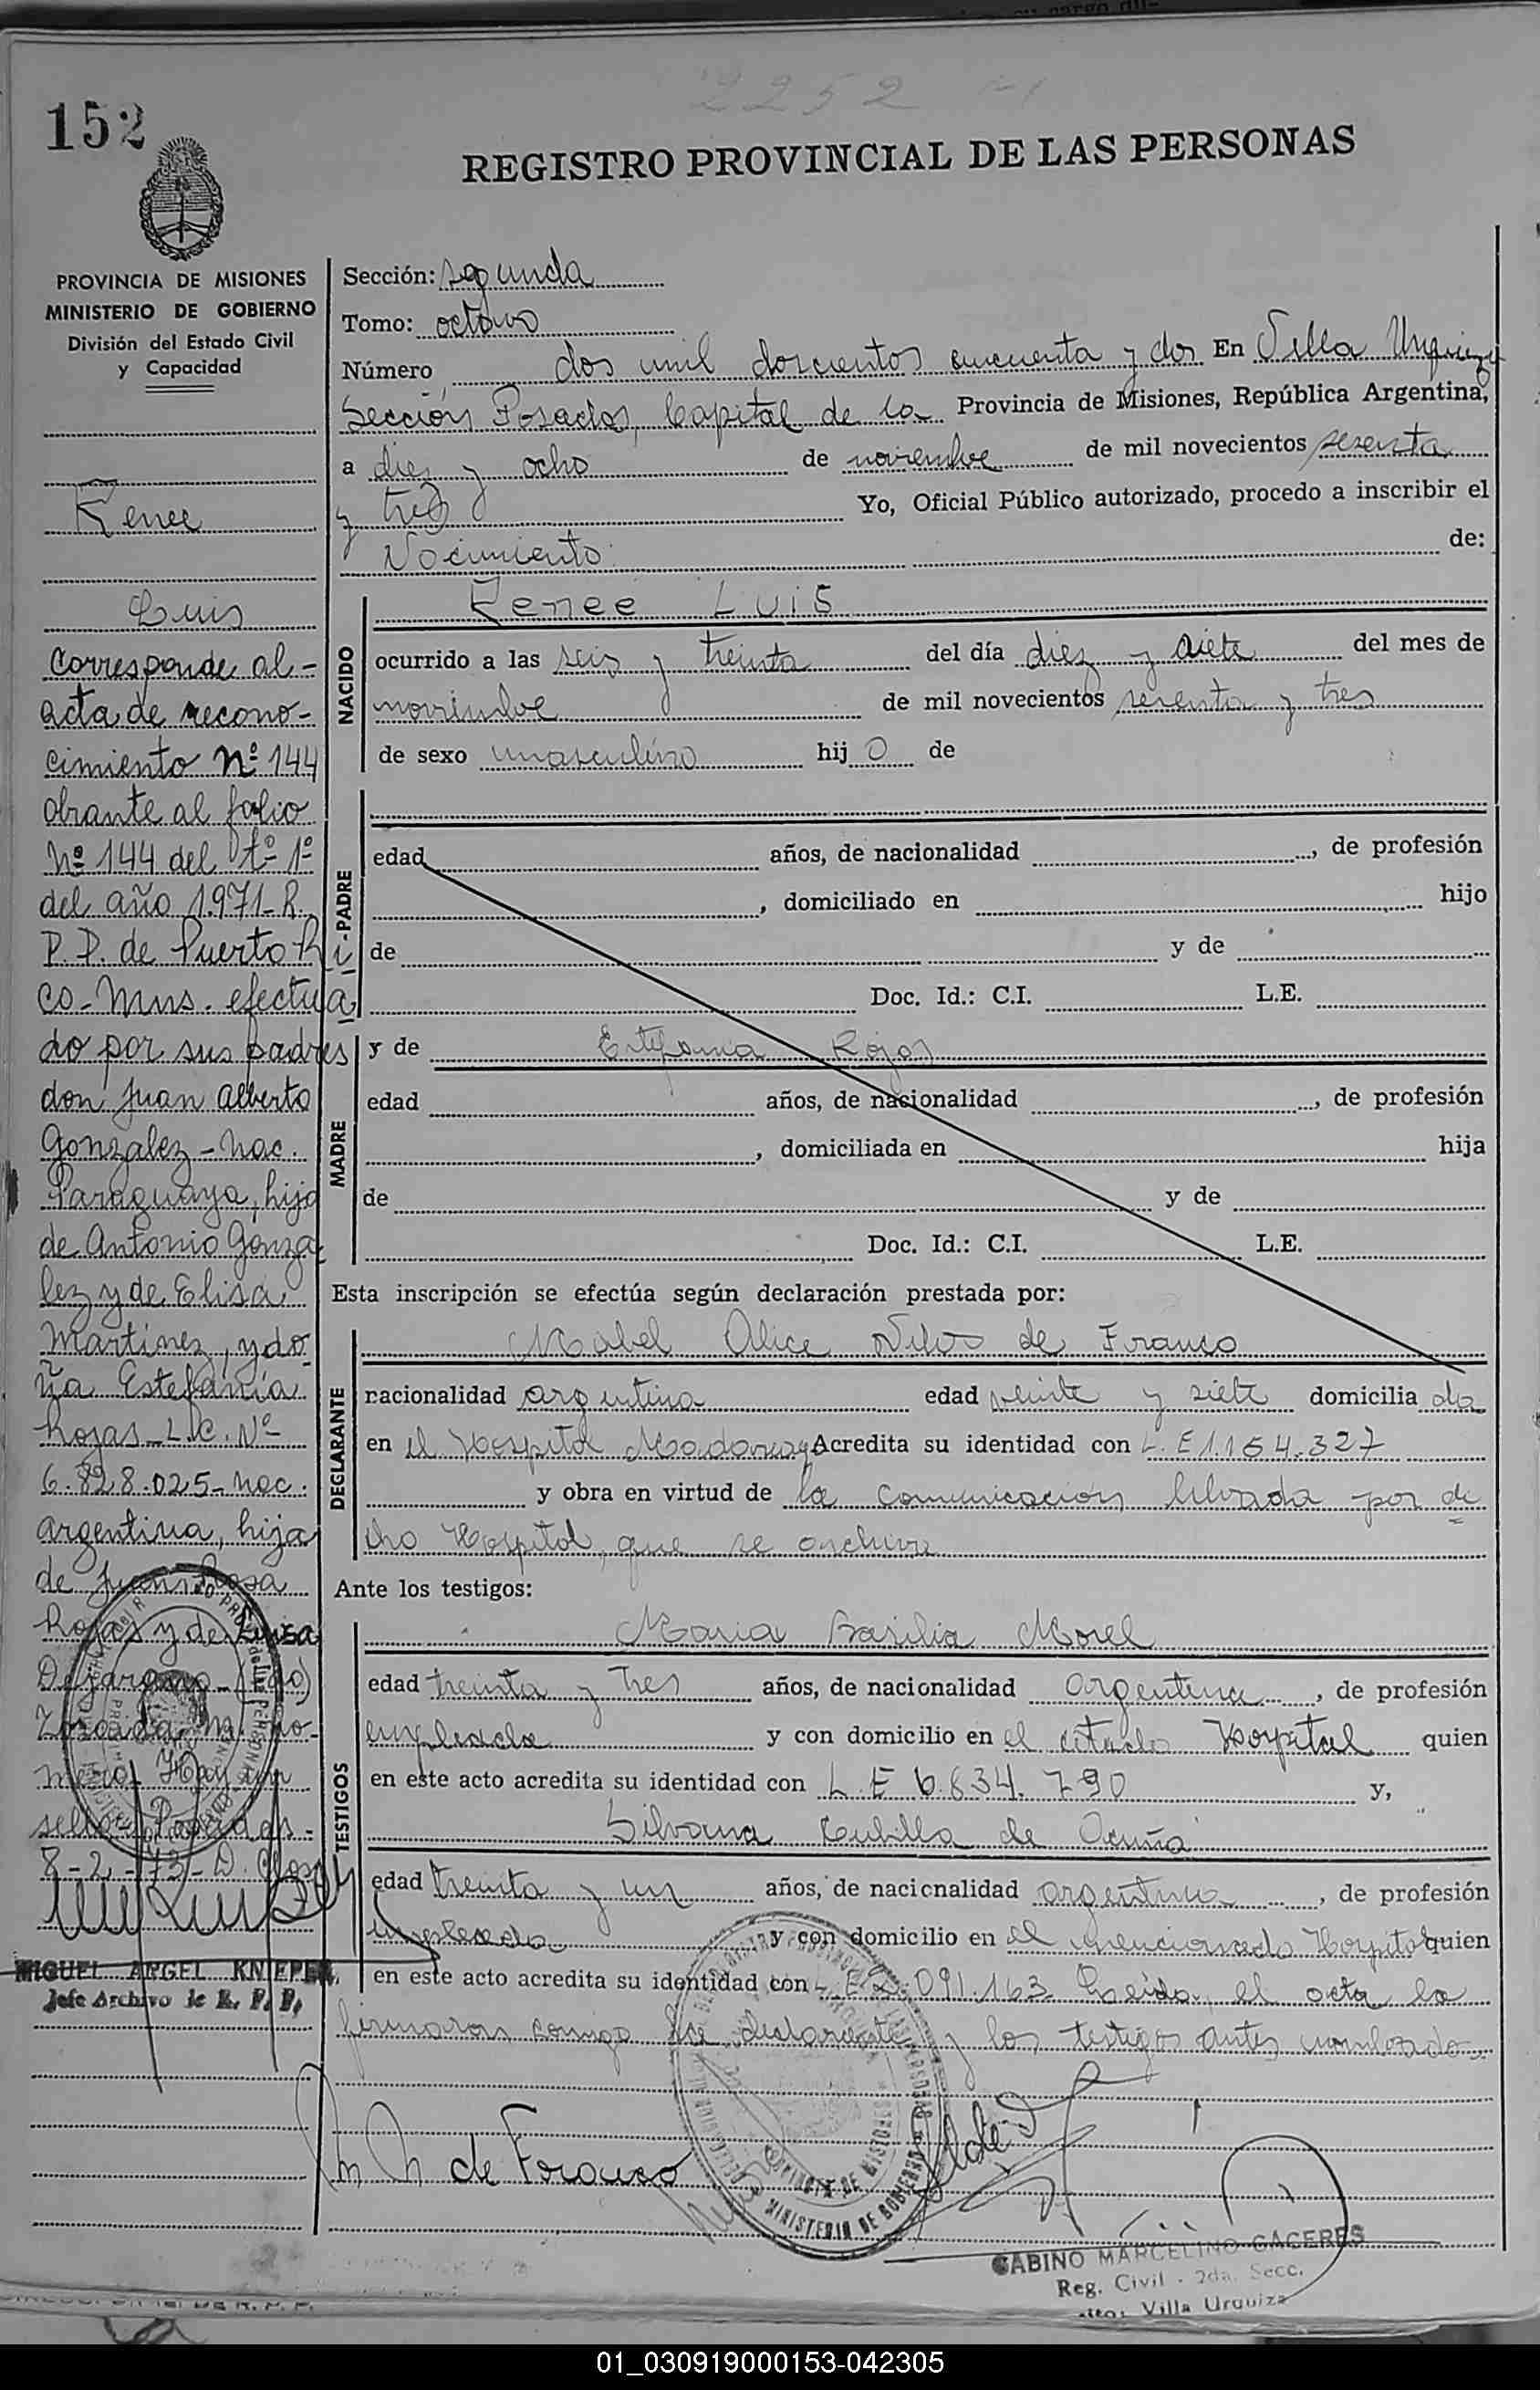 2252
152
REGISTRO PROVINCIAL DE LAS PERSONAS
PROVINCIA DE MISIONES
MINISTERIO DE GOBIERNO
División del Estado Civil
y Capacidad
Renee
Luis
Corresponde al-
acta de recono-
cimiento nº 144
obrante al folio
Nº 144 del tº 1º
del año 1.971- R.
P. P. de Puerto Ri
co- Mns. efectua
do por sus padres
don Juan Alberto
Gonzalez - Nac.
Paraguaya, hijo
de Antonio Gonza
lez y de Elisa
Martinez, y do
ña Estefanía
Rojas - L.C. Nº
6.828.025- nac.
argentina, hija
de Juan
Rojas y de Luisa
sello
8-2-73-
MIGUEL ANGEL KNIEPER
Jefe Archivo de R. P. P.
Sección: segunda
Tomo: octavo
Número dos mil doscientos cincuenta y dos En Villa Urquiza
Sección Posadas, Capital de la Provincia de Misiones, República Argentina,
a diez y ocho de noviembre de mil novecientos sesenta
y tres Yo, Oficial Público autorizado, procedo a inscribir el
Nacimiento de:
NACIDO
Renee Luis
ocurrido a las seis y treinta del día diez y siete del mes de
noviembre de mil novecientos sesenta y tres
de sexo masculino hij o de
PADRE
edad años, de nacionalidad , de profesión
, domiciliado en hijo
de y de
Doc. Id.: C.I. L.E.
MADRE
y de Estefania Rojas
edad años, de nacionalidad , de profesión
, domiciliada en hija
de y de
Doc. Id.: C.I. L.E.
Esta inscripción se efectúa según declaración prestada por:
DECLARANTE
Mabel Alice de Franco
nacionalidad argentina edad veinte y siete domicilia da
en el Hospital Madariaga Acredita su identidad con L. E 1.154.327
y obra en virtud de la comunicacion librada por di
cho Hospital, que se archiva
Ante los testigos:
TESTIGOS
Maria Basilia Morel
edad treinta y tres años, de nacionalidad argentina , de profesión
empleada y con domicilio en el citado Hospital quien
en este acto acredita su identidad con L. E 6.634.790 y,
Silvana Cubilla de Acuña
edad treinta y un años, de nacionalidad argentina , de profesión
empleada y con domicilio en el mencionado Hospital quien
en este acto acredita su identidad con L. E 2.091.163 Leida el acta la
firmaron conmigo declarante y los testigos antes nombrado
de Franco
MINISTERIO DE GOBIERNO
PROVINCIA DE MISIONES
GABINO MARCELINO CACERES
Reg. Civil - 2da. Secc.
Villa Urquiza
01_030919000153-042305